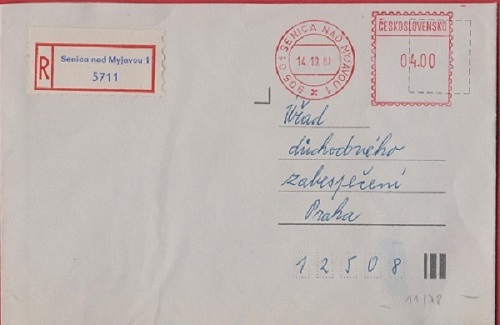 R
Senica nad Myjavou 1
5711
905 01 SENICA NAD MYJAVOU 1
14.10.
ČESKOSLOVENSKO
04.00
Úřad
důchodného
zabezpečení
Praha
12508
11/78